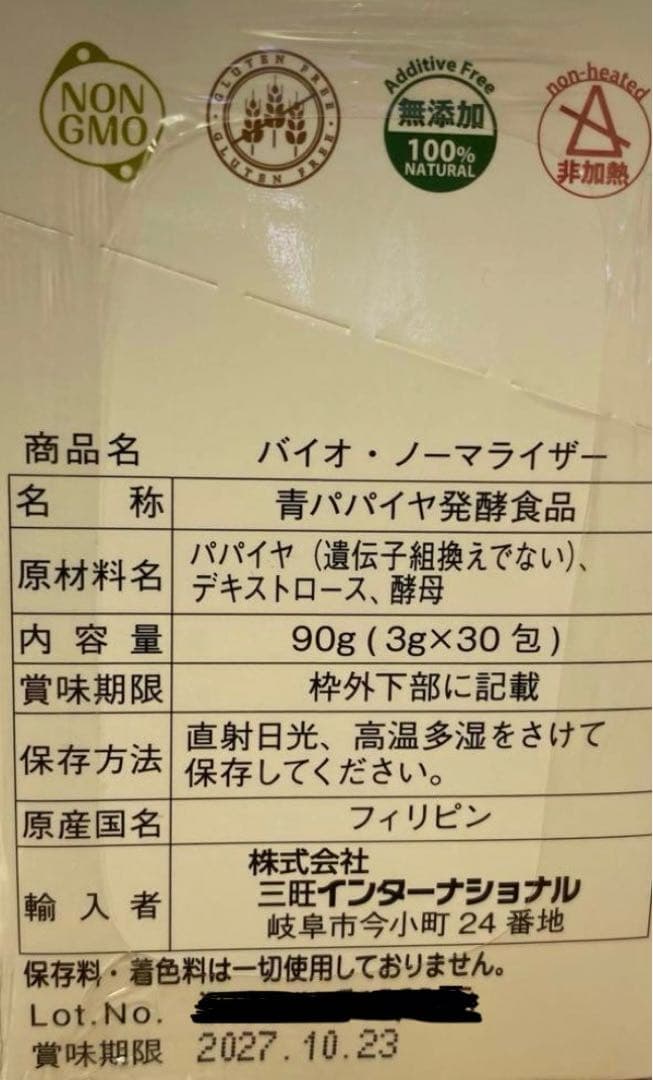 NON GMO
GLUTEN FREE · GLUTEN FREE
Additive Free
無添加
100%
NATURAL
non-heated
非加熱
商品名 バイオ・ノーマライザー
名称 青パパイヤ発酵食品
原材料名 パパイヤ（遺伝子組換えでない）、
デキストロース、酵母
内容量 90g ( 3g×30 包 )
賞味期限 枠外下部に記載
保存方法 直射日光、高温多湿をさけて
保存してください。
原産国名 フィリピン
輸入者 株式会社
三旺インターナショナル
岐阜市今小町 24 番地
保存料・着色料は一切使用しておりません。
Lot.No.
賞味期限 2027.10.23